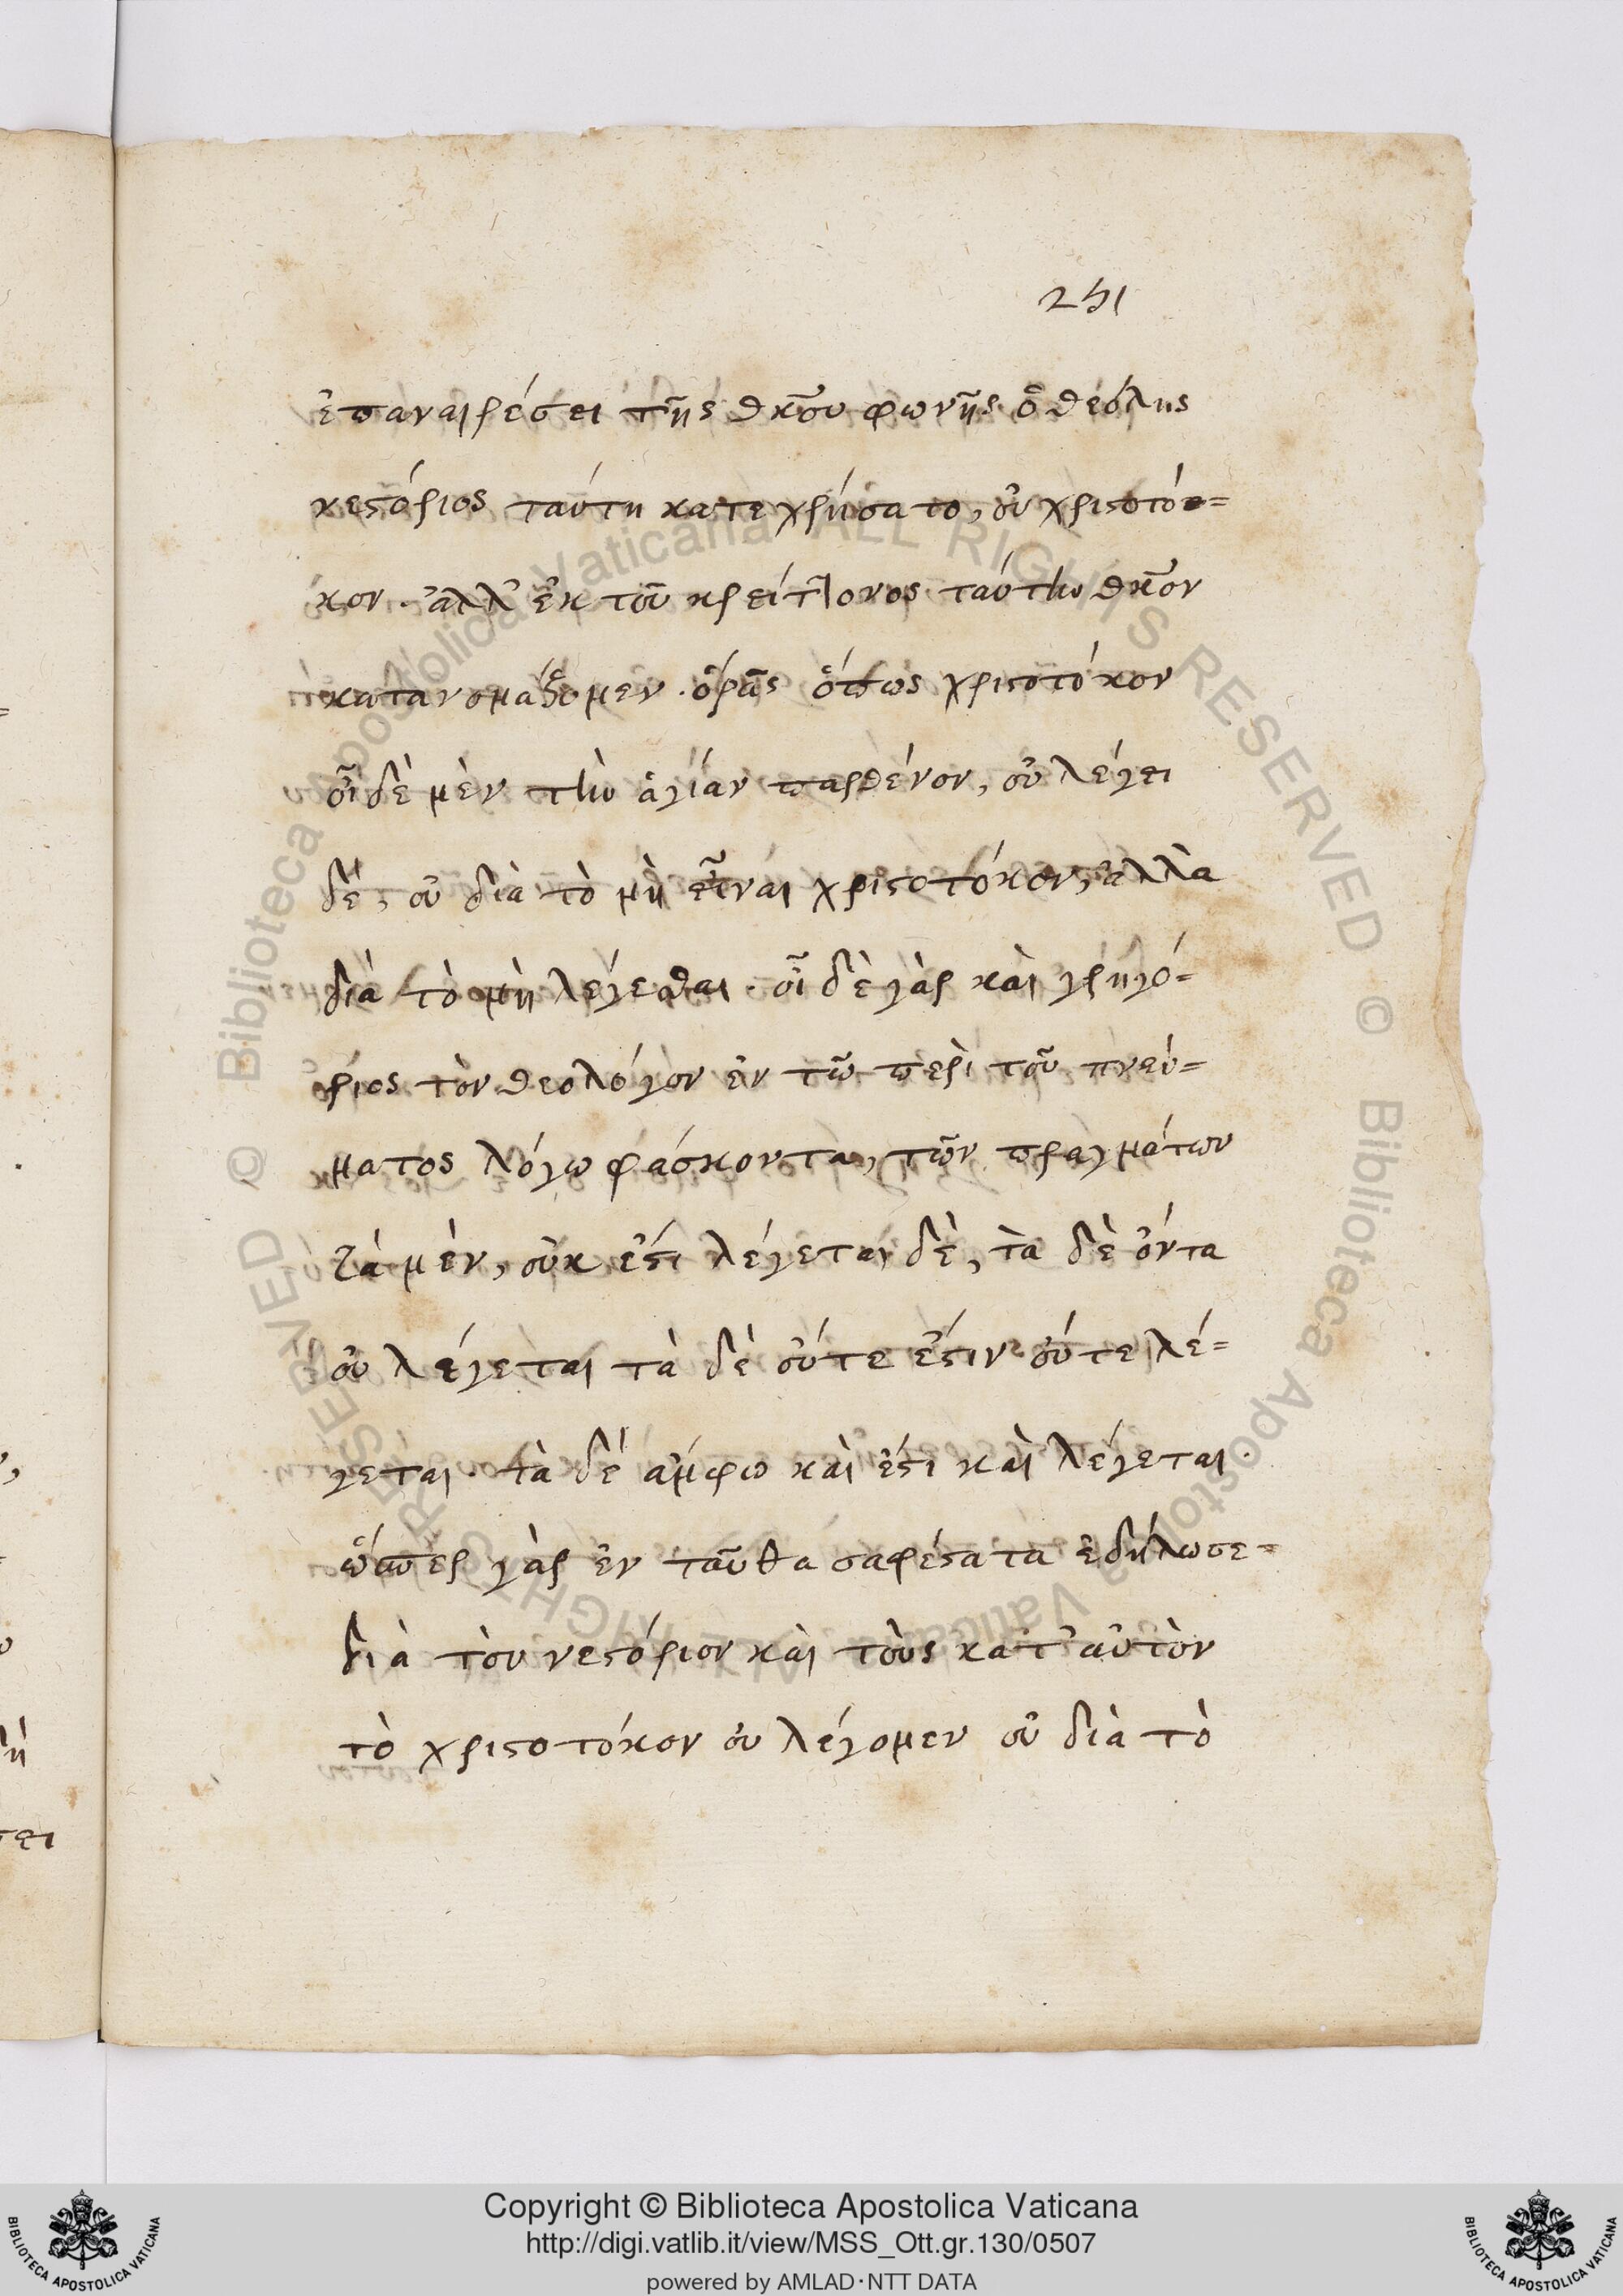 251
ἐπαναιρέσει τῆς θκ͞ου φωνῆς ὁ θεόλης
κεστόριος ταύτη κατεχρήσατο, οὐ χριστοτό=
κον. ἀλλ' ἐκ τοῦ κρείττονος ταύτην θκ͞ον
κατανομάζομεν. ὁρᾷς ὅπως χριστοτόκον
οἶδε μὲν τὴν ἁγίαν παρθένον, οὐ λέγει
δέ, οὐ διὰ τὸ μὴ εἶναι χριστοτόκον, ἀλλὰ
διὰ τὸ μὴ λέγεσθαι. οἶδε γὰρ καὶ γρηγό=
ριος τὸν θεολόγον ἐν τῷ περὶ τοῦ πνεύ=
ματος λόγω φάσκοντα, τῶν πραγμάτων
τὰ μὲν, οὐκ ἔστι λέγεται δὲ, τὰ δὲ ὄντα
οὐ λέγεται τὰ δὲ οὔτε ἔστιν οὔτε λέ=
γεται. τὰ δὲ ἄμφω καὶ ἔστι καὶ λέγεται.
ὥσπερ γὰρ ἐν ταῦθα σαφέστατα ἐδήλωσε=
διὰ τὸν νεστόριον καὶ τοὺς κατ' αὐτὸν
τὸ χριστοτόκον οὐ λέγομεν οὐ διὰ τὸ
Copyright © Biblioteca Apostolica Vaticana
http://digi.vatlib.it/view/MSS_Ott.gr.130/0507
powered by AMLAD·NTT DATA
BIBLIOTECA APOSTOLICA VATICANA
BIBLIOTECA APOSTOLICA VATICANA
© Biblioteca Apostolica Vaticana ALL RIGHTS RESERVED © Biblioteca Apostolica Vaticana ALL RIGHTS RESERVED